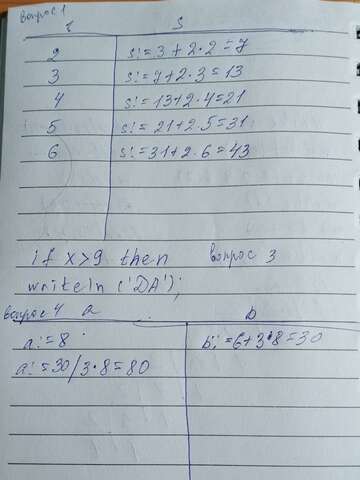 вопрос 1
i s
2 s:=3+2·2=7
3 s:=7+2·3=13
4 s:=13+2·4=21
5 s:=21+2·5=31
6 s:=31+2·6=43
if x>9 then вопрос 3
writeln ('DA');
вопрос 4 a b
a:=8 b:=6+3*8=30
a:=30/3·8=80